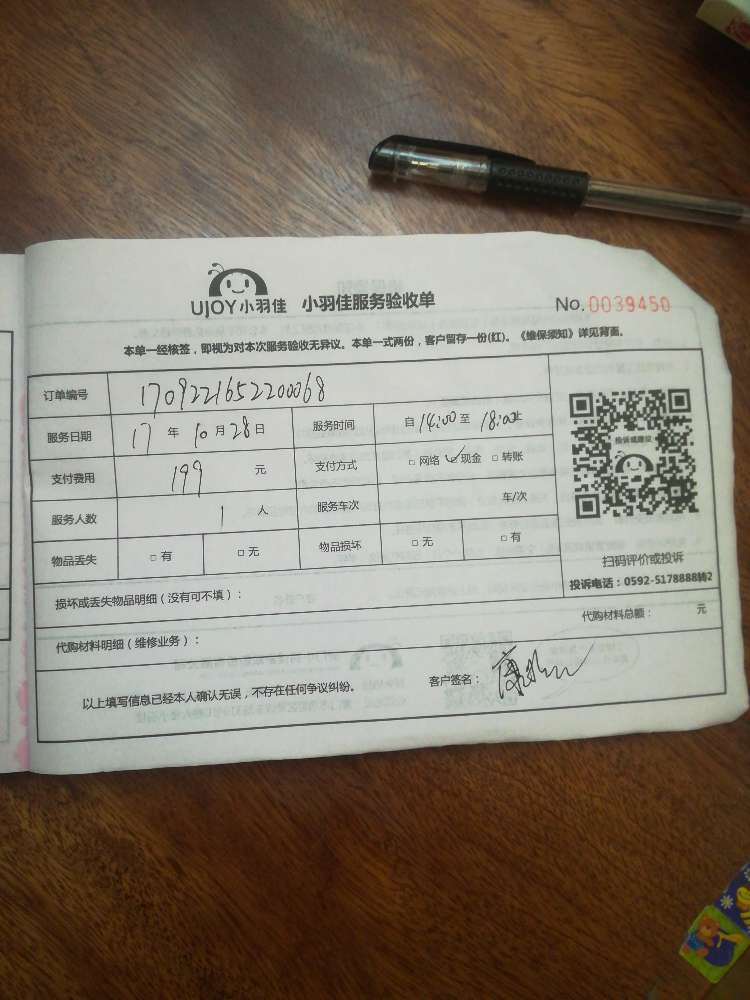 UJOY小羽佳 小羽佳服务验收单 No.0039450
本单一经核签，即视为对本次服务验收无异议。本单一式两份，客户留存一份(红)。《维保须知》详见背面。
订单编号 1709221652200068
服务日期 17年10月28日 服务时间 自14:00至18:00止
支付费用 199元 支付方式 □网络 ☑现金 □转账
服务人数 1人 服务车次 车/次
物品丢失 □有 □无 物品损坏 □无 □有
投诉或建议
扫码评价或投诉
投诉电话：0592-5178888转2
损坏或丢失物品明细（没有可不填）：
代购材料明细（维修业务）： 代购材料总额： 元
以上填写信息已经本人确认无误，不存在任何争议纠纷。 客户签名：康